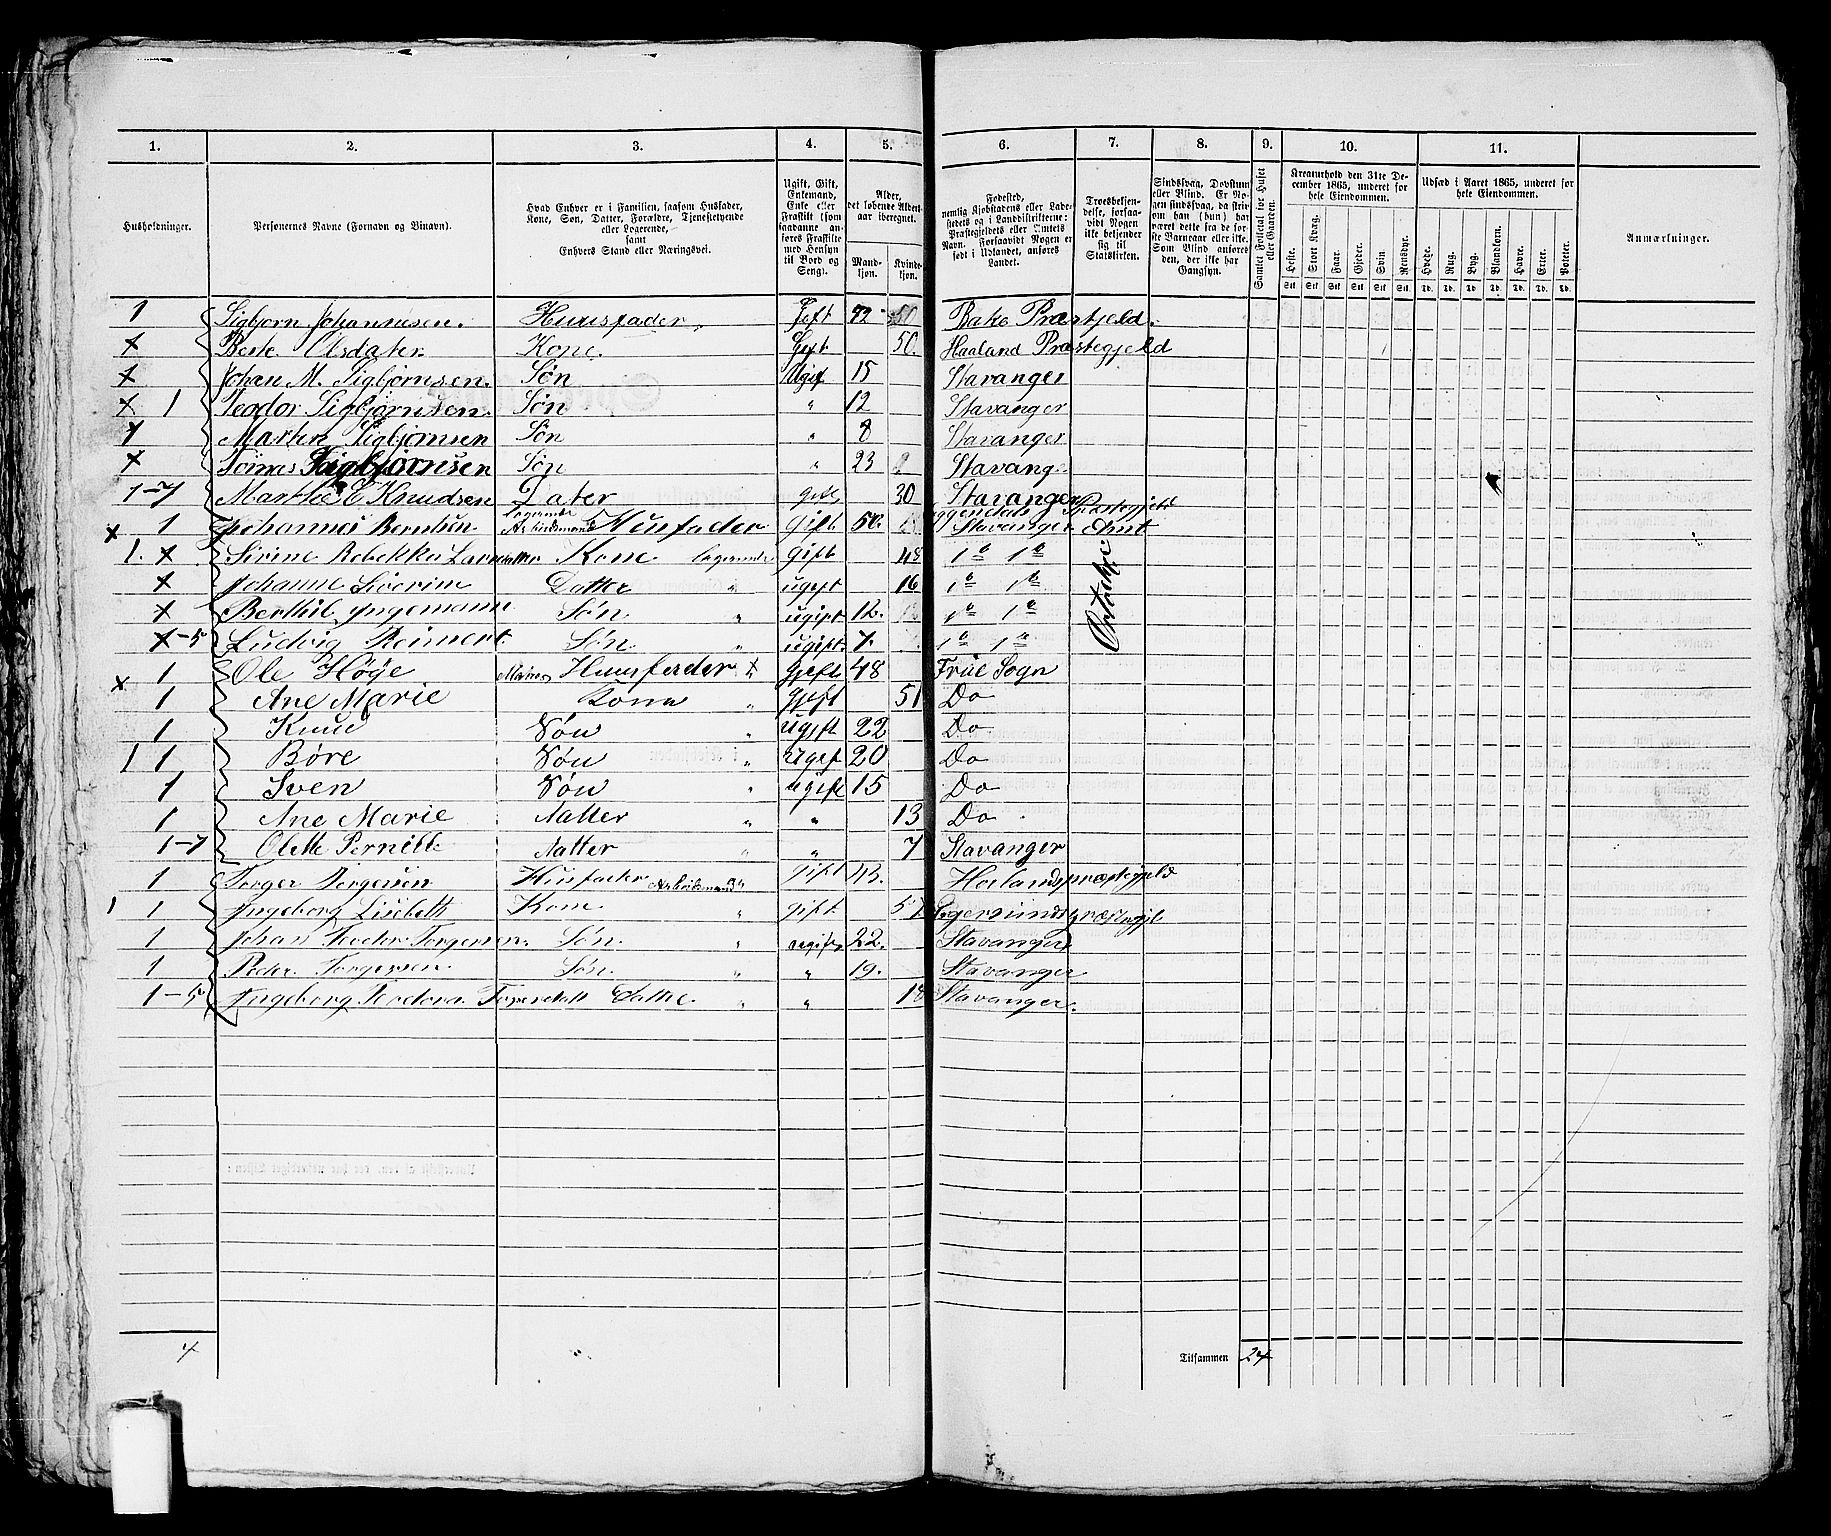 1. 2. 3. 4. 5. 6. 7. 8. 9. 10. 11.
Husholdninger.
Personernes Navne (Fornavn og Binavn).
Hvad Enhver er i Familien, saasom Husfader, Kone, Søn, Datter, Forældre, Tjenestetyende eller Logerende, samt Enhvers Stand eller Næringsvei.
Ugift, Gift, Enkemand, Enke eller Fraskilt (som saadanne anføres Fraskilte med Hensyn til Bord og Seng).
Alder, det løbende Alders-aar iberegnet.
Mandkjøn. Kvindekjøn.
Fødested, nemlig Kjøbstadens eller Ladestedets og i Landdistrikterne: Præstegjeldets eller Amtets Navn. Forsaavidt Nogen er født i Udlandet, anføres Landet.
Troesbekjendelse, forsaavidt Nogen ikke bekjender sig til Statskirken.
Sindssvag, Døvstum eller Blind. Er Nogen sindssvag, da skrives om han (hun) har været dette fra de første Barneaar eller ikke. Som Blind anføres den, der ikke har Gangsyn.
Samlet Folketal for Huset eller Gaarden.
Kreaturhold den 31te December 1865, underet for hele Eiendommen.
Heste. Stort Kvæg. Faar. Gjeder. Svin Rensdyr.
Udsæd i Aaret 1865, underet for hele Eiendommen.
Hvede. Rug. Byg. Blandkorn. Havre. Erter. Poteter.
Anmærkninger.
1 Sigbjørn Johannesen. Huusfader Gift 42 Præstjeld.
x Berte Olsdater Kone Gift 50. Haaland Præstegjeld
x Johan M. Sigbjørnsen. Søn Ugift 15 Stavanger
x 1 Teodor Sigbjørnsen. Søn " 12 Stavanger
1 Marten Sigbjørnsen Søn " 8 Stavanger
x Tønnes Sigbjørnsen Søn " 23 Stavanger
1-7 Marthe E Knudsen Dater gift 30 Stavanger
x 1 Johannes Berntsen. Logerende Arbeidsmand Husfader Gift 50. Præstegjeld Stavanger Amt
1. x Sirine Rebekka Larsdatter Kone Logerende Gift 48 do do
x Johanne Severine Datter " ugift 16 do do
x Berthil Ingemann Søn " ugift 12. do do
x-5 Ludvig Reimert. Søn " ugift 7. do do
x 1 Ole Høye Huusfader x Gjift 48 Frue Sogn
1 Ane Marie Kona " Gjift 51 Do
1 Knud Søn " Ugift 22 Do
1 1 Børe Søn " Ugift 20 Do
1 Sven Søn " ugift 15 Do
1 Ane Marie Datter " " 13 Do
1-7 Olette Pernille Datter " " 7 Stavanger
1 Torger Torgersen Husfader Arbeidsmand Gift 43. Holandspræstegjeld
1 1 Ingeborg Lisebett Kone " gift 57 Egersundspræstegjel
1 Johan Teodor Torgersen. Søn. " ugift 22. Stavanger
1 Peder Torgersen. Søn. " " 19. Stavanger
1-5 Ingeborg Teodora Torgersdatt Datter " " 18 Stavanger.
4 Tilsammen 24